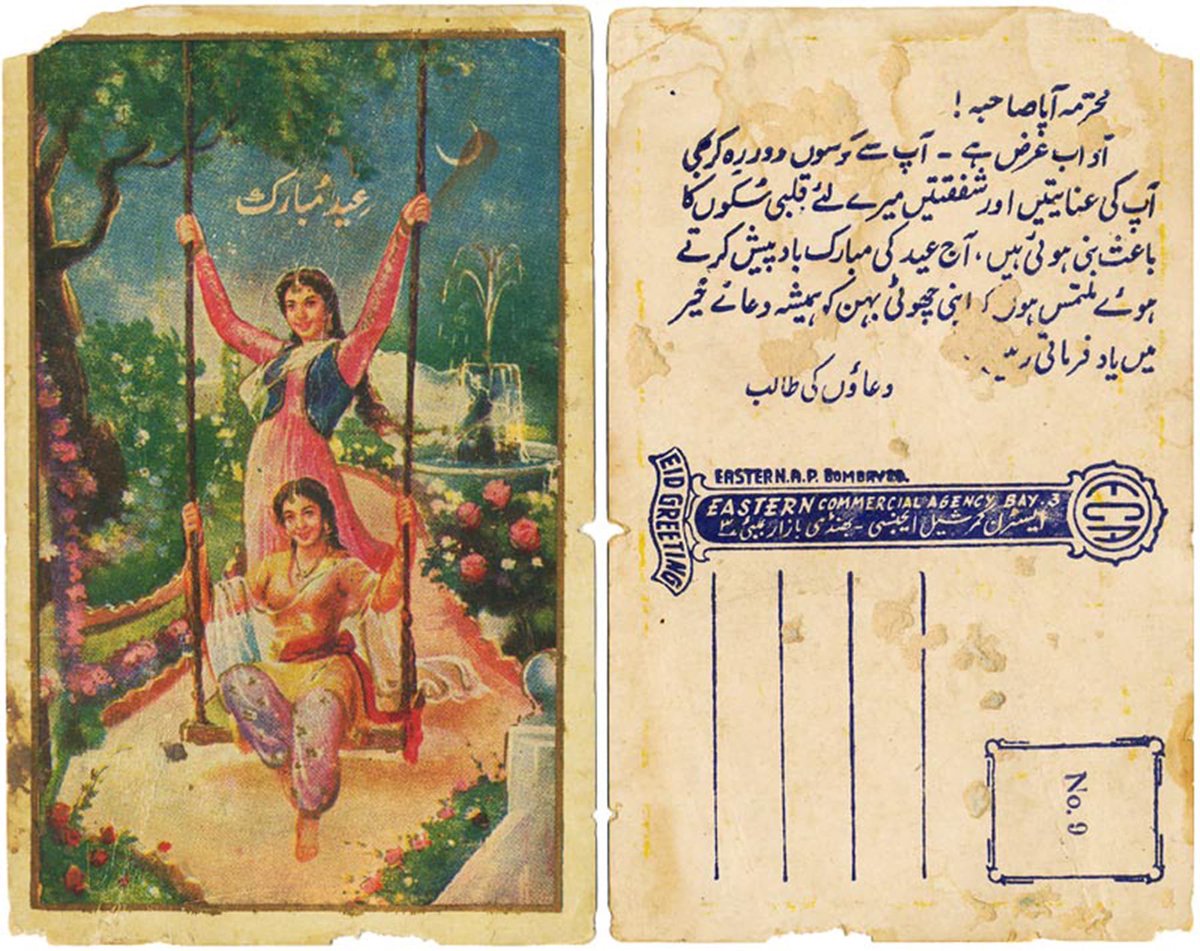 عید مُبارک
محترمہ آپا صاحبہ !
آداب عرض ہے - آپ سے کوسوں دور رہ کر بھی
آپ کی عنایتیں اور شفقتیں میرے لئے قلبی سُکوں کا
باعث بنی ہوئی ہیں، آج عید کی مبارک باد پیش کرتے
ہوئے ملتمس ہوں کہ اپنی چھوٹی بہن کو ہمیشہ دعائے خیر
میں یاد فرماتی
دعاؤں کی طالب
EASTERN.A.P. BOMBAY
EID GREETING
EASTERN COMMERCIAL AGENCY BAY.3
ایسٹرن کمرشیل ایجنسی - بھنڈی بازار بمبئی ۳
ECA
No. 9